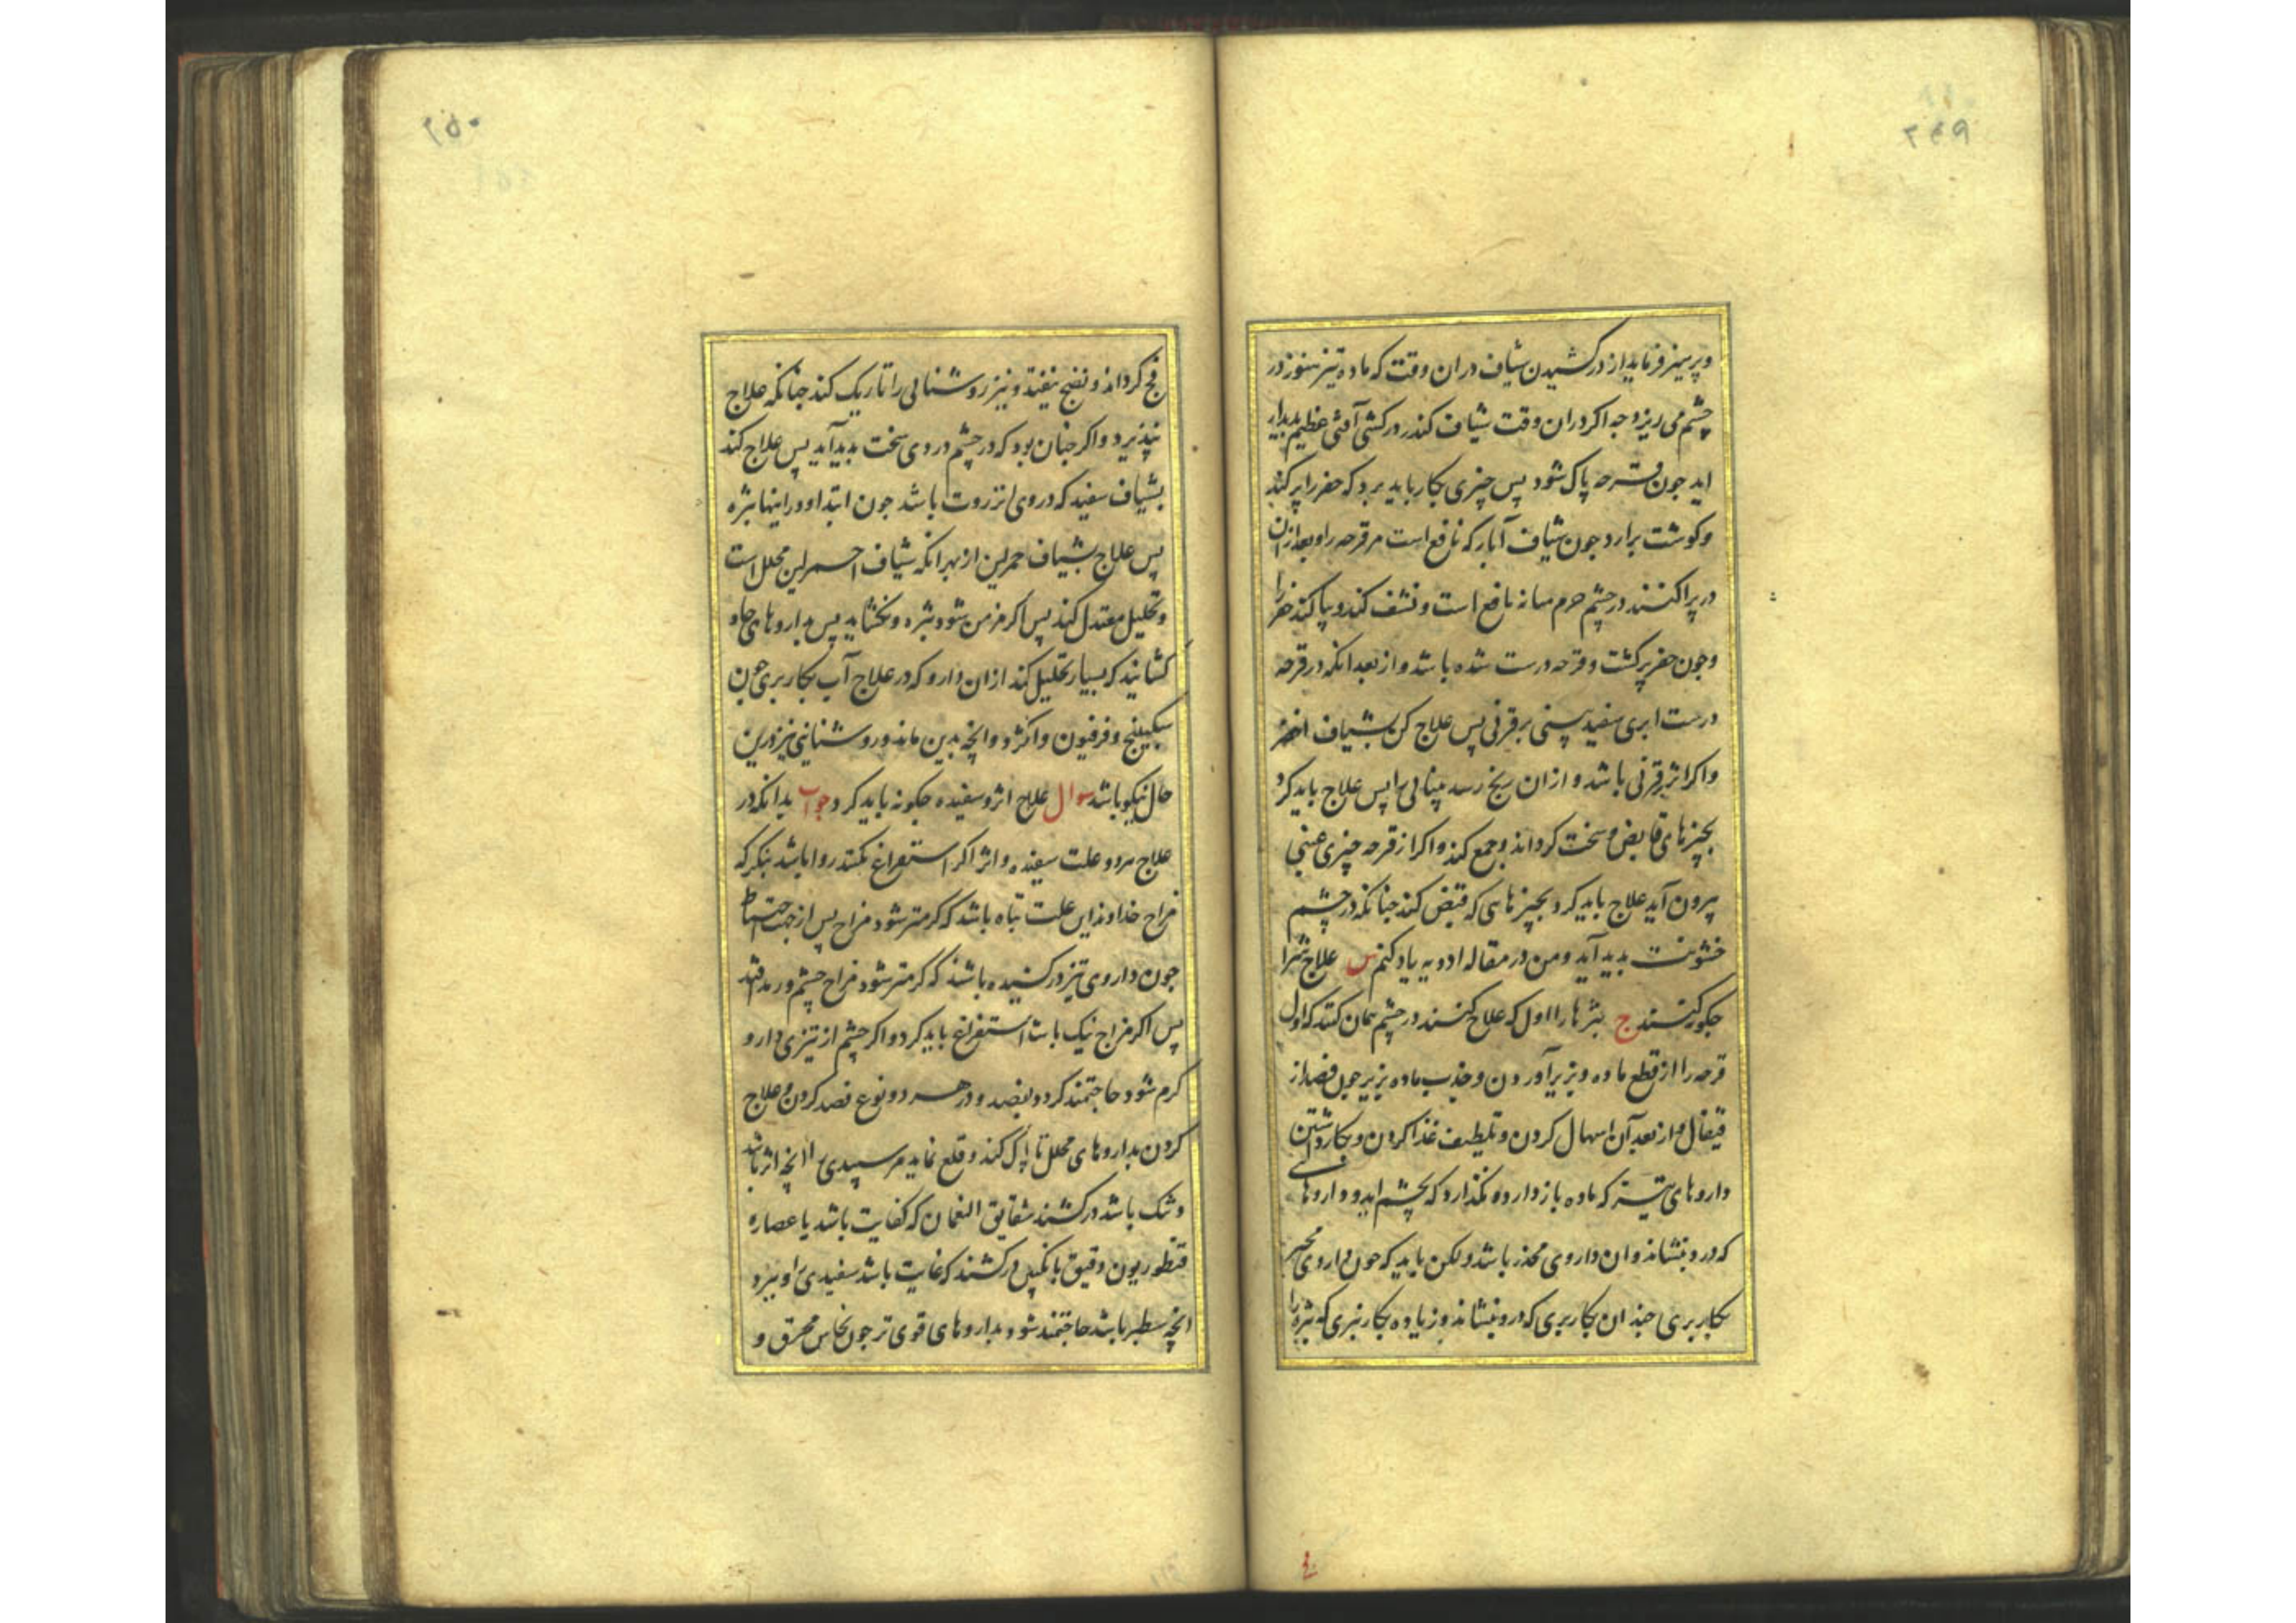 ۲۴۹
وپرهیز فرماید از درکشیدن شیاف دران وقت که ماده تیز هنوز در
چشم می ریزد جه اکر دران وقت شیاف کندر درکشی آفتی عظیم پدیدار
اید جون قرحه پاک شود پس چیزی بکار باید برد که حفر را پر کند
وکوشت برارد جون شیاف آبار که نافع است مر قرحه را و بعد ازان
در پراکنند در چشم نافع است و نشف کند و پاک کند حفر را
وجون حفر پر کشت وقرحه درست شده باشد واز بعد انکه در قرحه
درست ابری سفید بینی بر قرنی پس علاج کن بشیاف اخضر
واکر اثر قرنی باشد و ازان رسد بینائی را پس علاج باید کرد
بچیزهای قابض و سخت کرداند وجمع کند واکر از قرحه چیزی عنبی
بیرون آید علاج باید کرد بچیزهایی که قبض کند جنانکه در چشم
خشونت پدید آید ومن در مقاله ادویه یاد کنم س علاج بثر را
جکور کنند ج بثرها را اول که علاج کنند در چشم همان کنند که اول
قرحه را از قطع ماده و بزیر آوردن وجذب ماده بزیر جون فصد از
قیفال واز بعد آن اسهال کردن وتلطیف غذا کردن وبکار داشتن
داروهای که ماده باز دارد و نکذارد که بچشم اید و داروهای
که درد بنشاند وان داروی مخدر باشد ولکن باید که جون داروی مخدر
بکار بری جندان بکار بری که درد بنشاند وزیاده بکار نبری که بثره را
۲۵۰
فج کرداند ونضج نیفتد ونیز روشنائی را تاریک کند جنانکه علاج
نپذیرد واکر جنان بود که در چشم دردی سخت پدید آید پس علاج کند
بشیاف سفید که در وی انزروت باشد جون ابتدا بود اینها بثره
پس علاج بشیاف احمر لین از بهر انکه شیاف احمر لین محلل است
وتحلیل معتدل کند پس اکر مزمن شود بثره ونکشاید پس بداروهای حاد
کشایند که بسیار تحلیل کند ازان دارو که در علاج آب بکار بری جون
سکبینج وفرفیون وانکژد وانچه بدین ماند وروشنایی نیز درین
حال نیکو باشد سوال علاج اثر وسفیده جکونه باید کرد جواب بدانکه در
علاج هر دو علت سفیده واثر اکر استفراغ نکنند روا باشد بنکر که
مزاج خداوند این علت تباه باشد که کرمتر شود مزاج پس از جهت احتیاط
جون داروی تیز درکشیده باشند که کرمتر شود مزاج چشم ورمد افتد
پس اکر مزاج نیک باشد استفراغ باید کرد واکر چشم از تیزی دارو
کرم شود حاجتمند کردد بفصد ودر هر دو نوع فصد کردن وعلاج
کردن بداروهای محلل تا پاک کند وقلع نماید مر سپیدی را انچه اثر باشد
وتنک باشد درکشند شقایق النعمان که کفایت باشد یا عصاره
قنطوریون دقیق بانکبین درکشند که غایت باشد سفیدی را وببرد
انچه سطبر باشد حاجتمند شود بداروهای قوی تر جون نحاس محرق و